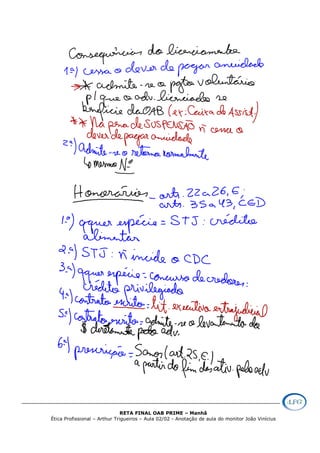 Consequências do licenciamento
1ª) cessa o dever de pagar anuidade
** admite-se o pgto voluntário
p/ que o adv. licenciado se
beneficie da OAB (ex: Caixa de Assist.)
** Na pena de SUSPENSÃO ñ cessa o
dever de pagar anuidade
2ª) Admite-se o retorno normalmente
↳ mesmo Nº
Honorários - arts. 22 a 26, E;
arts. 35 a 43, CED
1º) qquer espécie = STJ: crédito
alimentar
2º) STJ: ñ incide o CDC
3º) qquer espécie = concurso de credores:
crédito privilegiado
4º) contrato escrito = tít. executivo extrajudicial
5º) contrato escrito: admite-se o levantamento do
$ diretamente pelo adv.
6º) prescrição = 5 anos (art. 25, E)
a partir do fim das ativ. pelo adv
LFG
RETA FINAL OAB PRIME – Manhã
Ética Profissional – Arthur Trigueiros – Aula 02/02 - Anotação de aula do monitor João Vinícius